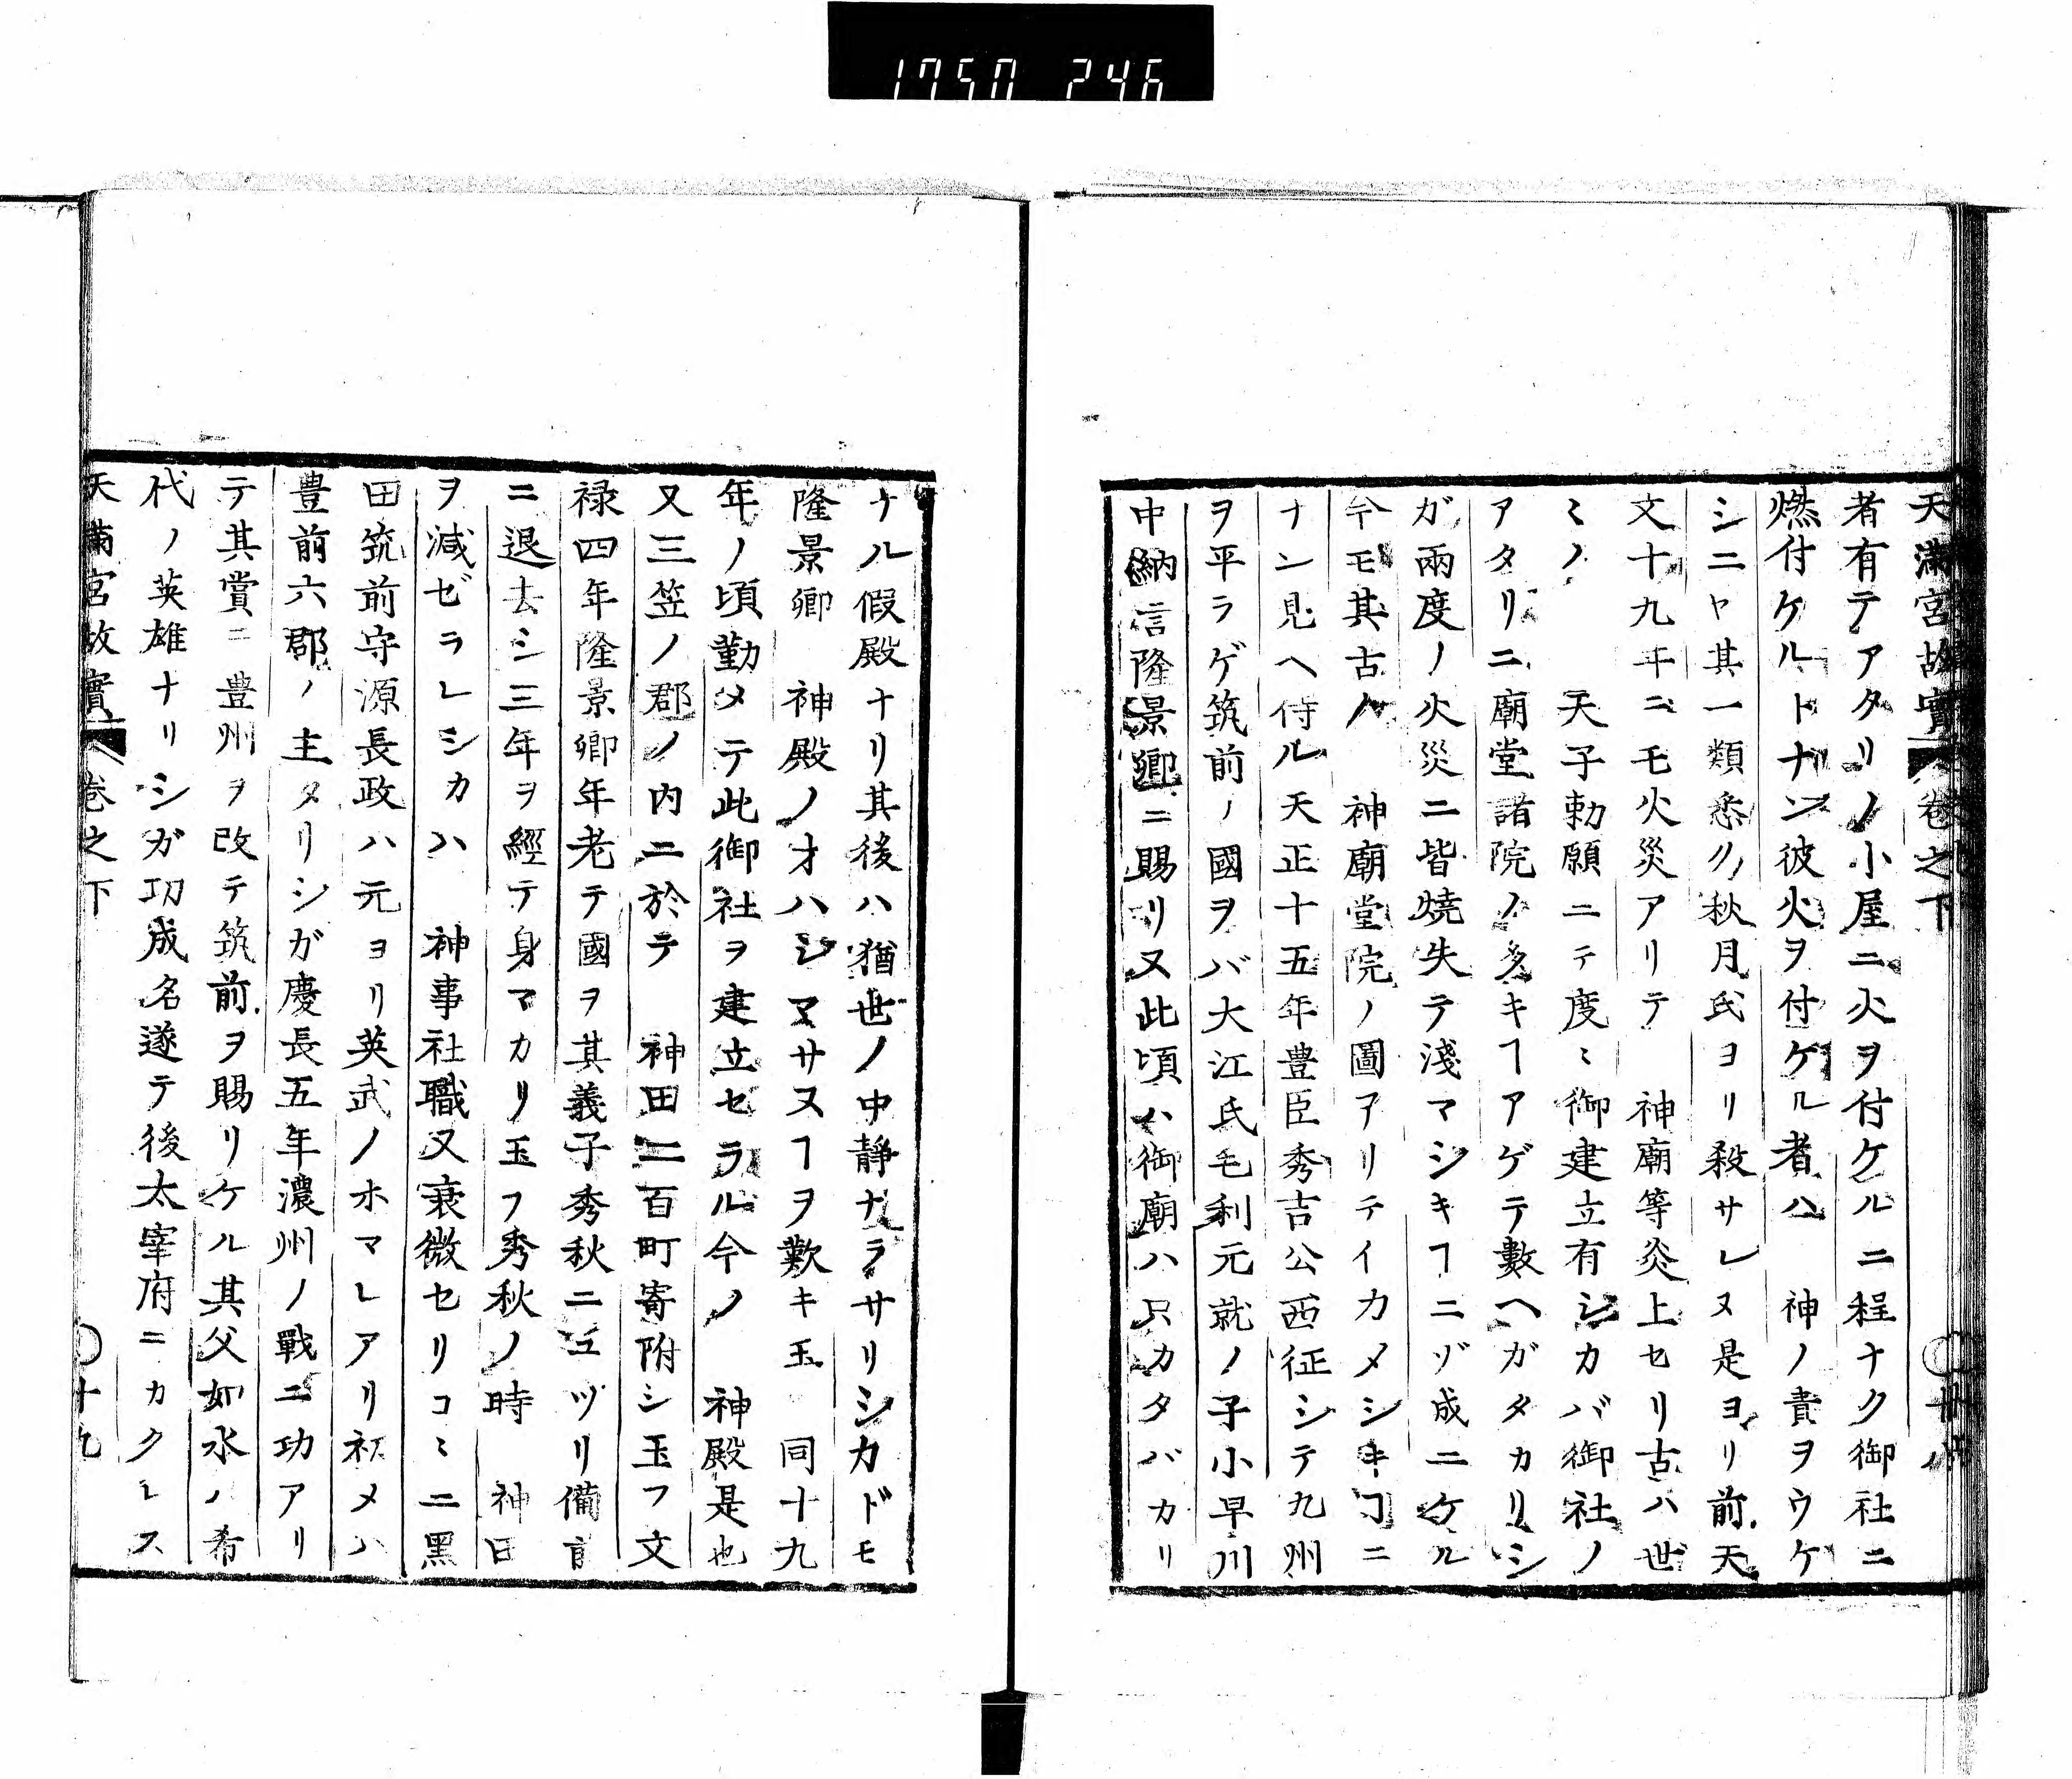 1750 246
天滿宮故實 卷之下
者有テアタリノ小屋ニ火ヲ付ケルニ程ナク御社ニ
燃付ケルトナン彼火ヲ付ケル者ハ 神ノ責ヲウケ
シニヤ其一類悉ク秋月氏ヨリ殺サレヌ是ヨリ前天
文十九年ニモ火災アリテ 神廟等炎上セリ古ハ世
ミノ 天子勅願ニテ度ミ御建立有シカバ御社ノ
アタリニ廟堂諸院ノ多キヿアゲテ數ヘガタカリシ
ガ兩度ノ火災ニ皆燒失テ淺マシキヿニゾ成ニケル
今モ其古ノ 神廟堂院ノ圖アリテイカメシキヿニ
ナン見ヘ侍ル天正十五年豊臣秀吉公西征シテ九州
ヲ平ラゲ筑前ノ國ヲバ大江氏毛利元就ノ子小早川
中納言隆景卿ニ賜リ又此頃ハ御廟ハ只カタバカリ
ナル假殿ナリ其後ハ猶世ノ中靜ナラサリシカドモ
隆景卿 神殿ノオハシマサヌヿヲ歎キ玉 同十九
年ノ頃勤メテ此御社ヲ建立セラル今ノ 神殿是也
又三笠ノ郡ノ内ニ於テ 神田二百町寄附シ玉フ文
禄四年隆景卿年老テ國ヲ其義子秀秋ニユヅリ備前
ニ退去シ三年ヲ經テ身マカリ玉フ秀秋ノ時 神田
ヲ減ゼラレシカハ 神事社職又衰微セリコミニ黑
田筑前守源長政ハ元ヨリ英武ノホマレアリ初メハ
豊前六郡ノ主タリシガ慶長五年濃州ノ戰ニ功アリ
テ其賞ニ豊州ヲ改テ筑前ヲ賜リケル其父如水ハ希
代ノ英雄ナリシガ功成名遂テ後太宰府ニカクレス
天滿宮故實 卷之下 十九